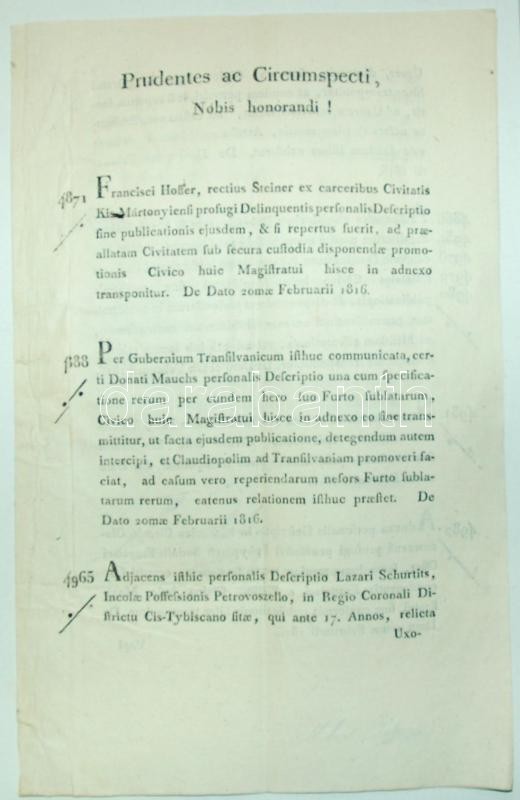 Prudentes ac Circumspecti,
Nobis honorandi !
4871 Francisci Hoffer, rectius Steiner ex carceribus Civitatis
Kis-Mártonyiensi profugi Delinquentis personalis Descriptio
sine publicationis ejusdem, & si repertus fuerit, ad præ-
allatam Civitatem sub secura custodia disponendæ promo-
tionis Civico huic Magistratui hisce in adnexo
transponitur. De Dato 20mæ Februarii 1816.
Per Guberaium Transilvanicum isthuc communicata, cer-
ti Donati Mauchs personalis Descriptio una cum specifica-
tione rerum per eundem hero suo Furto sublatarum,
Civico huic Magistratui hisce in adnexo eo fine trans-
mittitur, ut facta ejusdem publicatione, detegendum autem
intercipi, et Claudiopolim ad Transilvaniam promoveri fa-
ciat, ad casum vero reperiendarum nefors Furto subla-
tarum rerum, eatenus relationem isthuc præstet. De
Dato 20mæ Februarii 1816.
4965 Adjacens isthic personalis Descriptio Lazari Schurtits,
Incolæ Possessionis Petrovoszello, in Regio Coronali Di-
strictu Cis-Tybiscano sitæ, qui ante 17. Annos, relicta
Uxo-
databanth